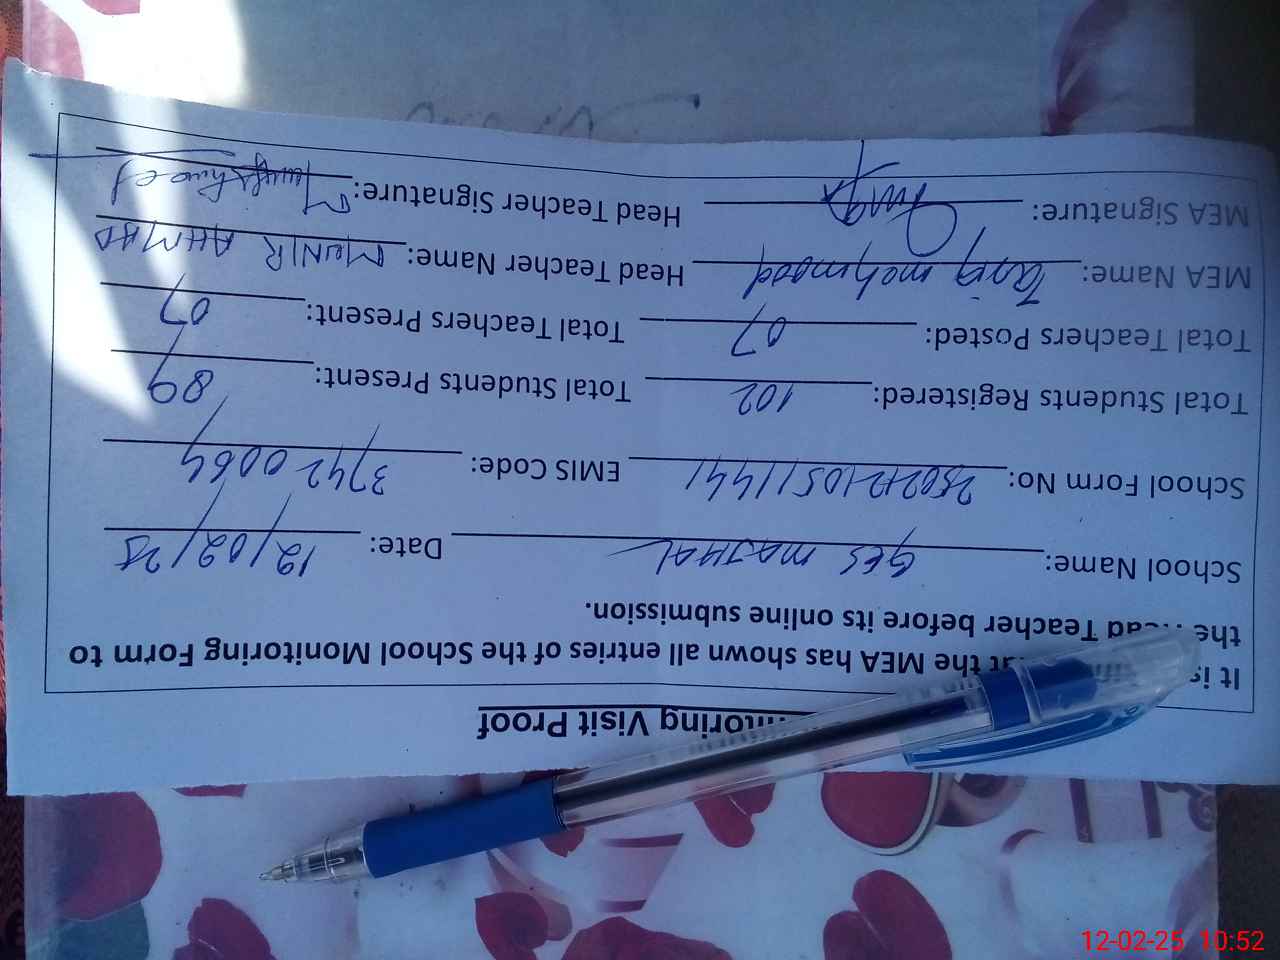 nitoring Visit Proof
It is that the MEA has shown all entries of the School Monitoring Form to
the Head Teacher before its online submission.
School Name: GES MAJHAL Date: 12/02/25
School Form No: EMIS Code: 37420064
Total Students Registered: 102 Total Students Present: 89
Total Teachers Posted: 07 Total Teachers Present: 07
MEA Name: Tariq mehmood Head Teacher Name: MUNIR AHMAD
MEA Signature: Head Teacher Signature:
12-02-25 10:52